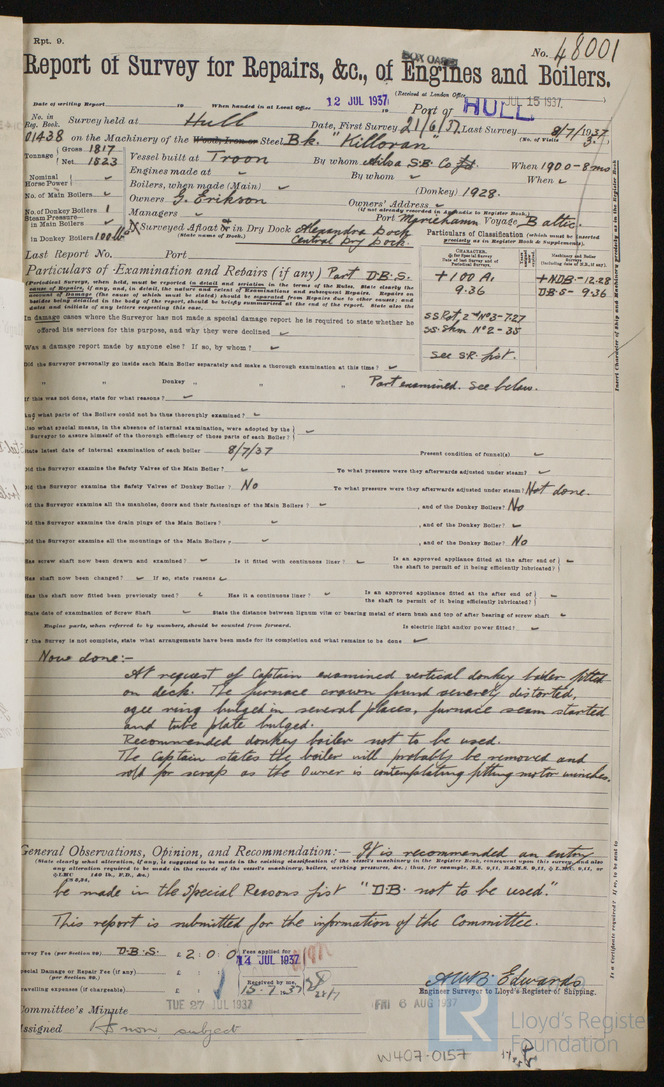 Rpt. 9.
BOX OASES
No. 48001
Report of Survey for Repairs, &c., of Engines and Boilers.
(Received at London Office JUL 15 1937.
Date of writing Report 19 When handed in at Local Office 12 JUL 1937 19 Port of HULL
No. in Reg. Book. Survey held at Hull Date, First Survey 21/6/37 Last Survey 8/7/1937
(No. of Visits 3.)
01438 on the Machinery of the Wood, Iron or Steel Bk. "Killoran"
Tonnage Gross 1817 Net 1523
Vessel built at Troon By whom Ailsa S.B. Co Ltd. When 1900-8mo
Engines made at By whom When
Nominal Horse Power
Boilers, when made (Main) (Donkey) 1928.
No. of Main Boilers
Owners G. Erikson Owners' Address
(if not already recorded in Appendix to Register Book.)
No. of Donkey Boilers 1
Managers Port Mariehamn Voyage Baltic.
Steam Pressure in Main Boilers
in Donkey Boilers 100 lbs
If Surveyed Afloat or in Dry Dock Alexandra Dock
(State name of Dock.) Central Dry Dock.
Particulars of Classification (which must be inserted precisely as in Register Book & Supplements).
Last Report No. Port
Particulars of Examination and Repairs (if any) Part D.B.S.
CHARACTER.
+ 100 A. + NDB-12.28
9.36 DBS- 9.36
SS No2-35
See S.R. list.
In damage cases where the Surveyor has not made a special damage report he is required to state whether he
offered his services for this purpose, and why they were declined
Was a damage report made by anyone else? If so, by whom?
Did the Surveyor personally go inside each Main Boiler separately and make a thorough examination at this time?
" " Donkey " " " Part examined. See below.
If this was not done, state for what reasons?
And what parts of the Boilers could not be thus thoroughly examined?
Also what special means, in the absence of internal examination, were adopted by the
Surveyor to assure himself of the thorough efficiency of those parts of each Boiler?
State latest date of internal examination of each boiler 8/7/37 Present condition of funnel(s)
Did the Surveyor examine the Safety Valves of the Main Boiler? To what pressure were they afterwards adjusted under steam?
Did the Surveyor examine the Safety Valves of Donkey Boiler? No To what pressure were they afterwards adjusted under steam? Not done.
Did the Surveyor examine all the manholes, doors and their fastenings of the Main Boilers? , and of the Donkey Boilers? No
Did the Surveyor examine the drain plugs of the Main Boilers? , and of the Donkey Boiler?
Did the Surveyor examine all the mountings of the Main Boilers? , and of the Donkey Boiler? No
Has screw shaft now been drawn and examined? Is it fitted with continuous liner? Is an approved appliance fitted at the after end of
the shaft to permit of it being efficiently lubricated?
Has shaft now been changed? If so, state reasons
Has the shaft now fitted been previously used? Has it a continuous liner? Is an approved appliance fitted at the after end of
the shaft to permit of it being efficiently lubricated?
State date of examination of Screw Shaft State the distance between lignum vitæ or bearing metal of stern bush and top of after bearing of screw shaft
Engine parts, when referred to by numbers, should be counted from forward. Is electric light and/or power fitted?
If the Survey is not complete, state what arrangements have been made for its completion and what remains to be done
Now done:-
At request of Captain examined vertical donkey boiler fitted
on deck. The furnace crown found severely distorted,
ogee ring bulged in several places, furnace seam started
and tube plate bulged.
Recommended donkey boiler not to be used.
The Captain states the boiler will probably be removed and
sold for scrap as the Owner is contemplating fitting motor winches.
General Observations, Opinion, and Recommendation:— It is recommended an entry
(State clearly what alteration, if any, is suggested to be made in the existing classification of the vessel's machinery in the Register Book, consequent upon this survey, and also
any alteration required to be made in the records of the vessel's machinery, boilers, working pressures, &c.;
be made in the Special Reasons list "D.B. not to be used."
This report is submitted for the information of the Committee.
Survey Fee (per Section 29) D.B.S. £ 2 : 0 : 0 Fees applied for
14 JUL 1937
Special Damage or Repair Fee (if any) £ : :
(per Section 29.)
Received by me,
Travelling expenses (if chargeable) £ : : 15.7.1937
A.W.B. Edwards
Engineer Surveyor to Lloyd's Register of Shipping.
Committee's Minute TUE 27 JUL 1937 FRI 6 AUG 1937
Assigned As now subject
LR Lloyd's Register Foundation
W407-0157